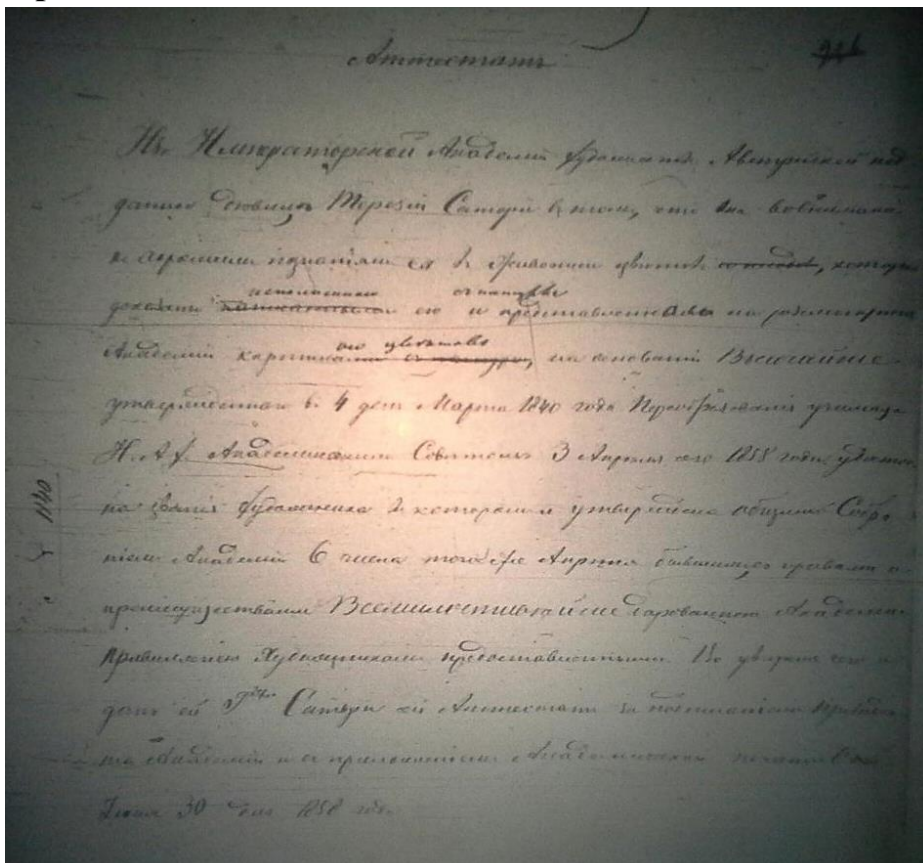 Аттестатъ
Изъ Императорской Академіи Художествъ Австрійской под
данной дѣвицѣ Терезіи Сатори въ томъ, что она во вниманіи
къ хорошимъ познаніямъ ея въ живописи цвѣтовъ которыя
исполненною съ натуры
доказаны ею и представленными на разсмотрѣніе
Академіи картинами цвѣтовъ на основаніи Высочайше
утвержденнаго въ 4 день Марта 1840 года училища
И. А. Х. Академическимъ Совѣтомъ 3 Апрѣля сего 1858 года удостое
на званія Художника въ которомъ и утверждена общимъ Собра
ніемъ Академіи 6 числа того же Апрѣля бывшимъ, съ правами и
преимуществами Всемилостивѣйше дарованною Академіи
привиллегіею Художникамъ предоставленными. Во увѣреніе чего и
данъ ей Сатори сей Аттестатъ за подписаніемъ
та Академіи и съ приложеніемъ Академической печати
Іюня 30 дня 1858 года.
1140